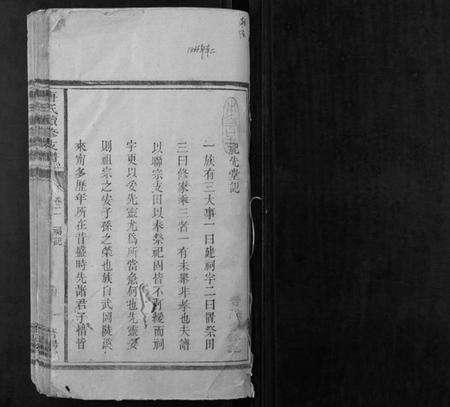 祀先堂記
一族有三大事一曰建祠宇二曰置祭田
三曰修家乘三者一有未舉非孝也夫譜
以聯宗支田以奉祭祀固皆不可緩而祠
宇更以妥先靈尤為所當急何也先靈妥
則祖宗之安子孫之榮也族自武岡陝
來甯多歷年所在昔盛時先諸君子惜皆
氏續修支譜
卷二
祠記